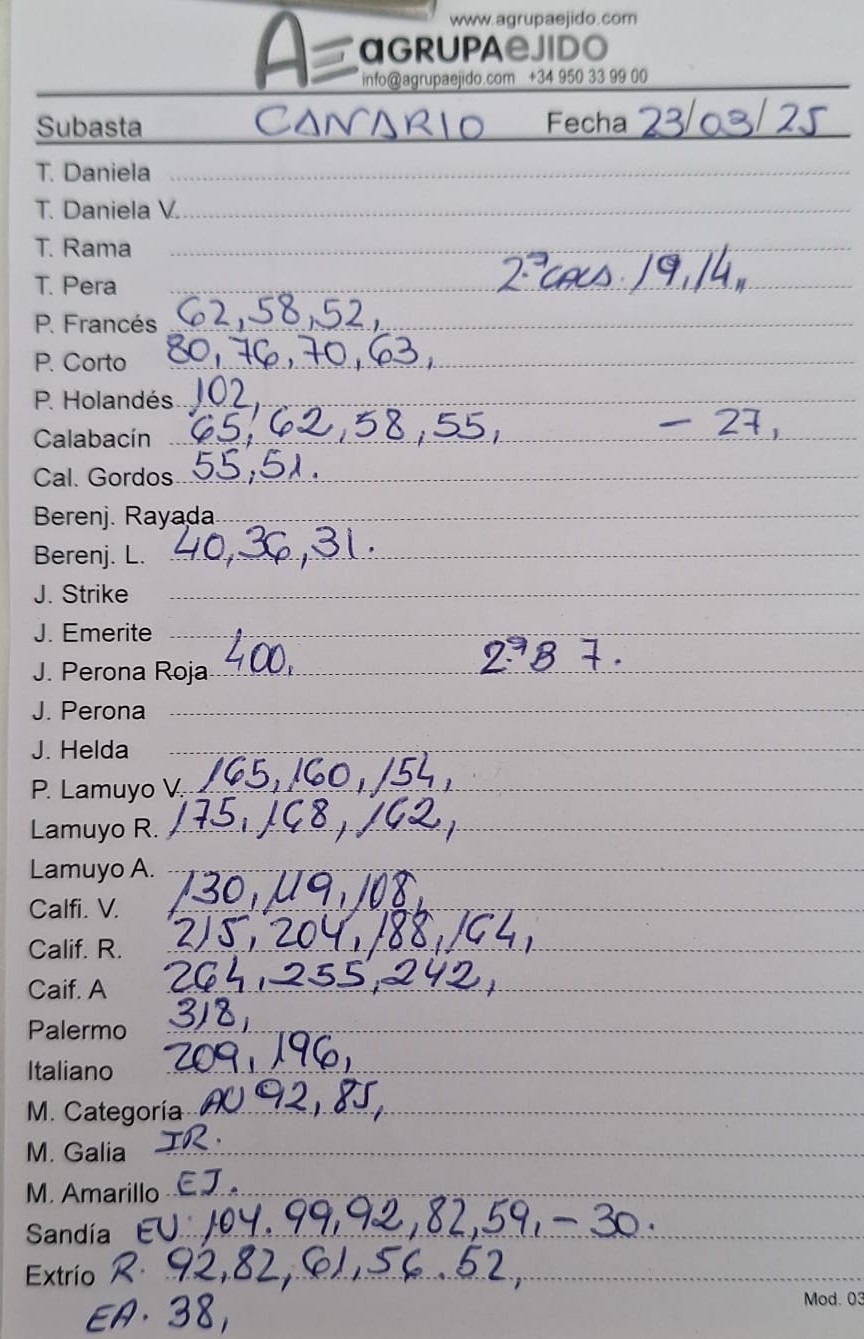 www.agrupaejido.com
AGRUPAEJIDO
info@agrupaejido.com +34 950 33 99 00
Subasta CANARIO Fecha 23/03/25
T. Daniela
T. Daniela V.
T. Rama
T. Pera 2.ª CALS. 19, 14,,
P. Francés 62, 58, 52,
P. Corto 80, 76, 70, 63,
P. Holandés 102,
Calabacín 65, 62, 58, 55, - 27,
Cal. Gordos 55, 51.
Berenj. Rayada
Berenj. L. 40, 36, 31.
J. Strike
J. Emerite
J. Perona Roja 400, 2.ª B 7.
J. Perona
J. Helda
P. Lamuyo V. 165, 160, 154,
Lamuyo R. 175, 168, 162,
Lamuyo A.
Calfi. V. 130, 119, 108,
Calif. R. 215, 204, 188, 164,
Caif. A 264, 255, 242,
Palermo 318,
Italiano 209, 196,
M. Categoría AU 92, 85,
M. Galia IR.
M. Amarillo EJ.
Sandía EU 104. 99, 92, 82, 59, - 30.
Extrío R. 92, 82, 61, 56. 52,
Mod. 03
EA. 38,